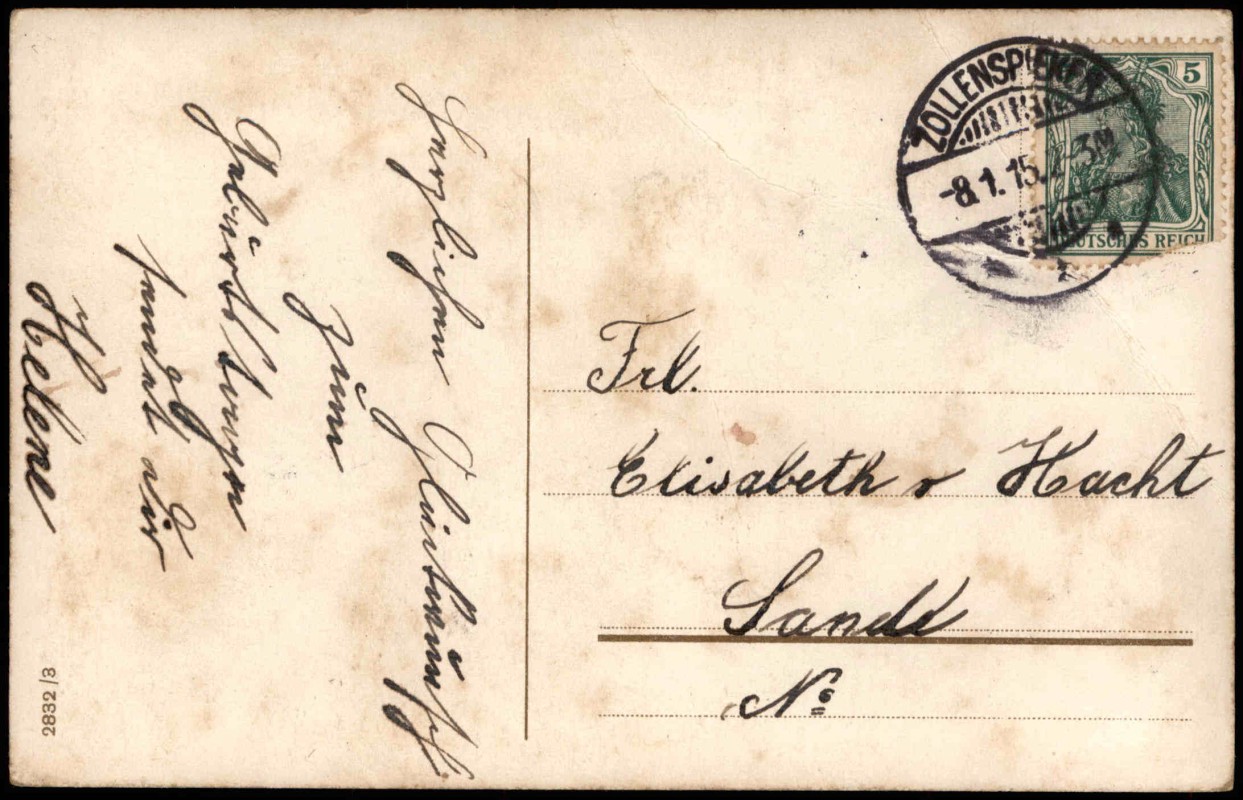 Herzlichen Glückwunsch
zum
Geburtstage
sendet dir
Helene
2832/3
ZOLLENSPIEKER
-8.1.15.
5
DEUTSCHES REICH
Frl.
Elisabeth v Hacht
Sande
No